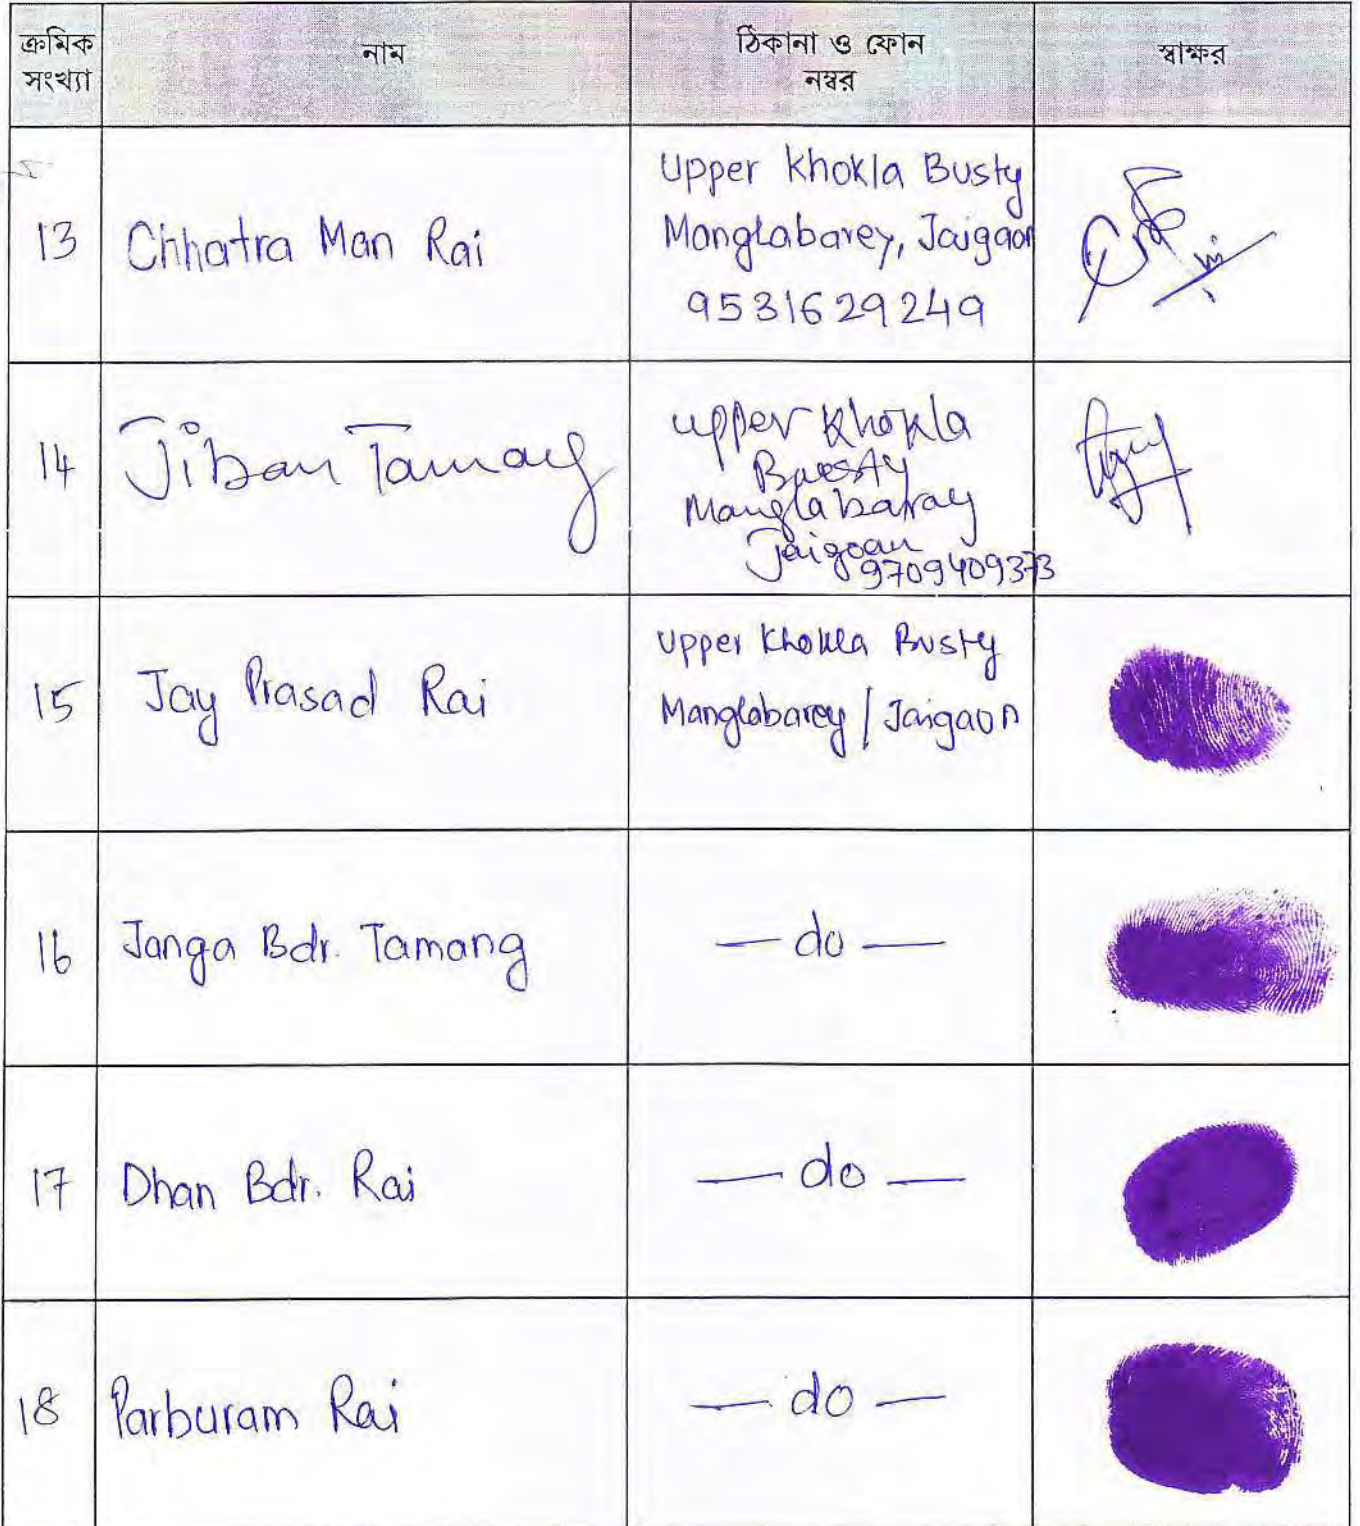 ক্রমিক সংখ্যা	নাম	ঠিকানা ও ফোন নম্বর	স্বাক্ষর
13	Chhatra Man Rai	Upper Khokla Busty
Manglabarey, Jaigaon
9531629249
14	Jiban Tamang	upper Khokla
Buesty
Manglabaray
Jaigoan
9709409373
15	Jay Prasad Rai	Upper Khokla Busty
Manglabarey / Jaigaon
16	Janga Bdr. Tamang	— do —
17	Dhan Bdr. Rai	— do —
18	Parburam Rai	— do —